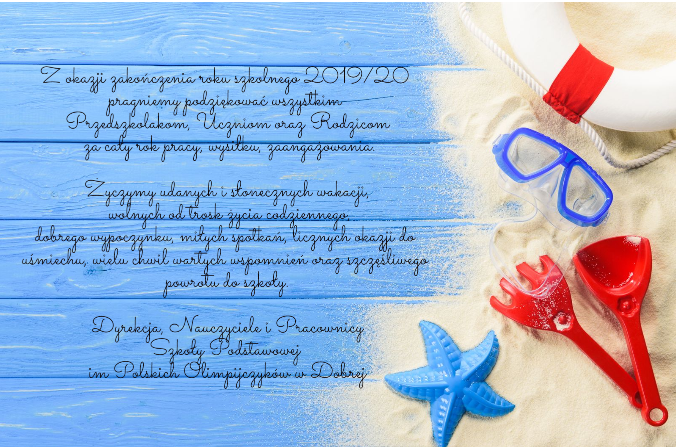 Z okazji zakończenia roku szkolnego 2019/20
pragniemy podziękować wszystkim
Przedszkolakom, Uczniom oraz Rodzicom
za cały rok pracy, wysiłku, zaangażowania.
Życzymy udanych i słonecznych wakacji,
wolnych od trosk życia codziennego,
dobrego wypoczynku, miłych spotkań, licznych okazji do
uśmiechu, wielu chwil wartych wspomnień oraz szczęśliwego
powrotu do szkoły.
Dyrekcja, Nauczyciele i Pracownicy
Szkoły Podstawowej
im Polskich Olimpijczyków w Dobrej